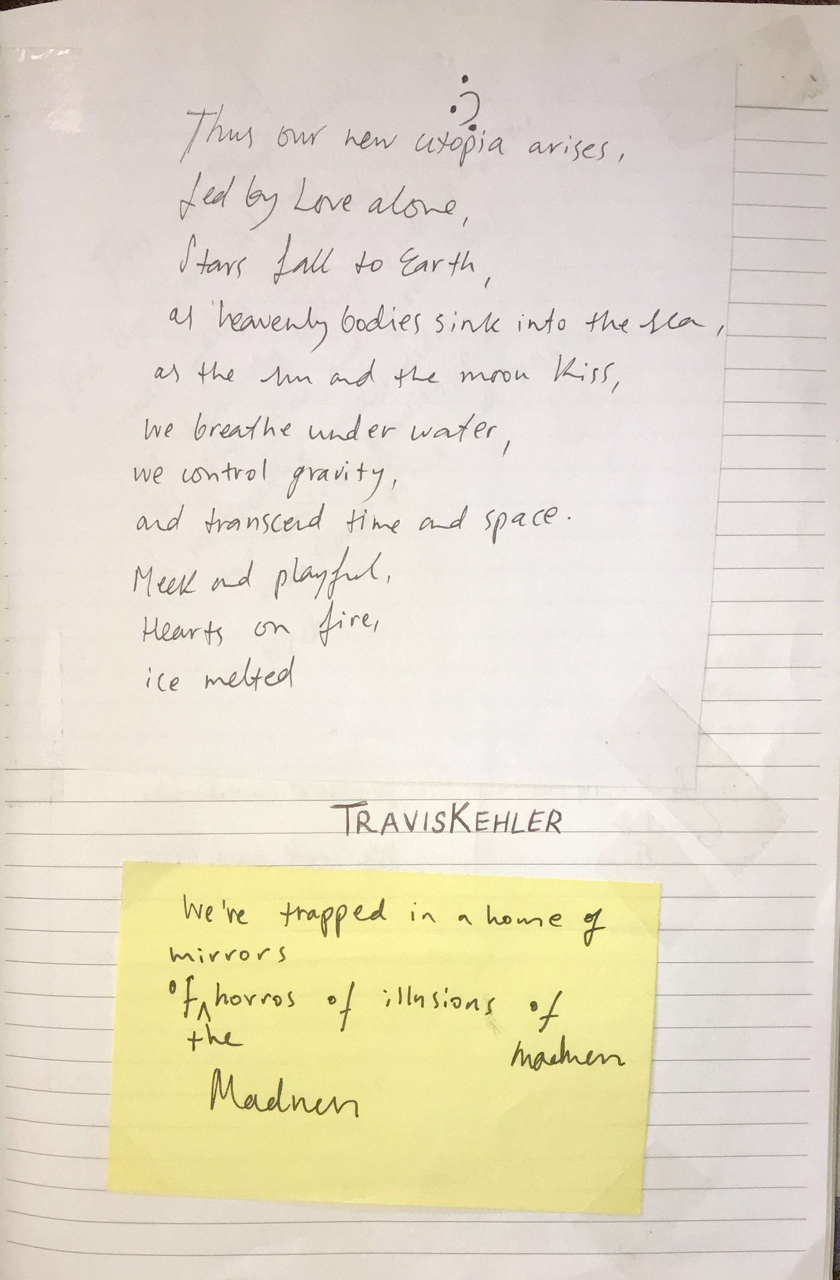 Thus our new utopia arises,
Led by Love alone,
Stars fall to Earth,
as heavenly bodies sink into the sea,
as the sun and the moon kiss,
we breathe under water,
we control gravity,
and transcend time and space.
Meek and playful,
Hearts on fire,
ice melted
TRAVISKEHLER
We're trapped in a house of
mirrors
of ^ horros of illusions of
the
madness
Madness